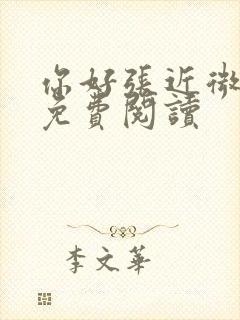 你好張近微
免費閱讀
李文華